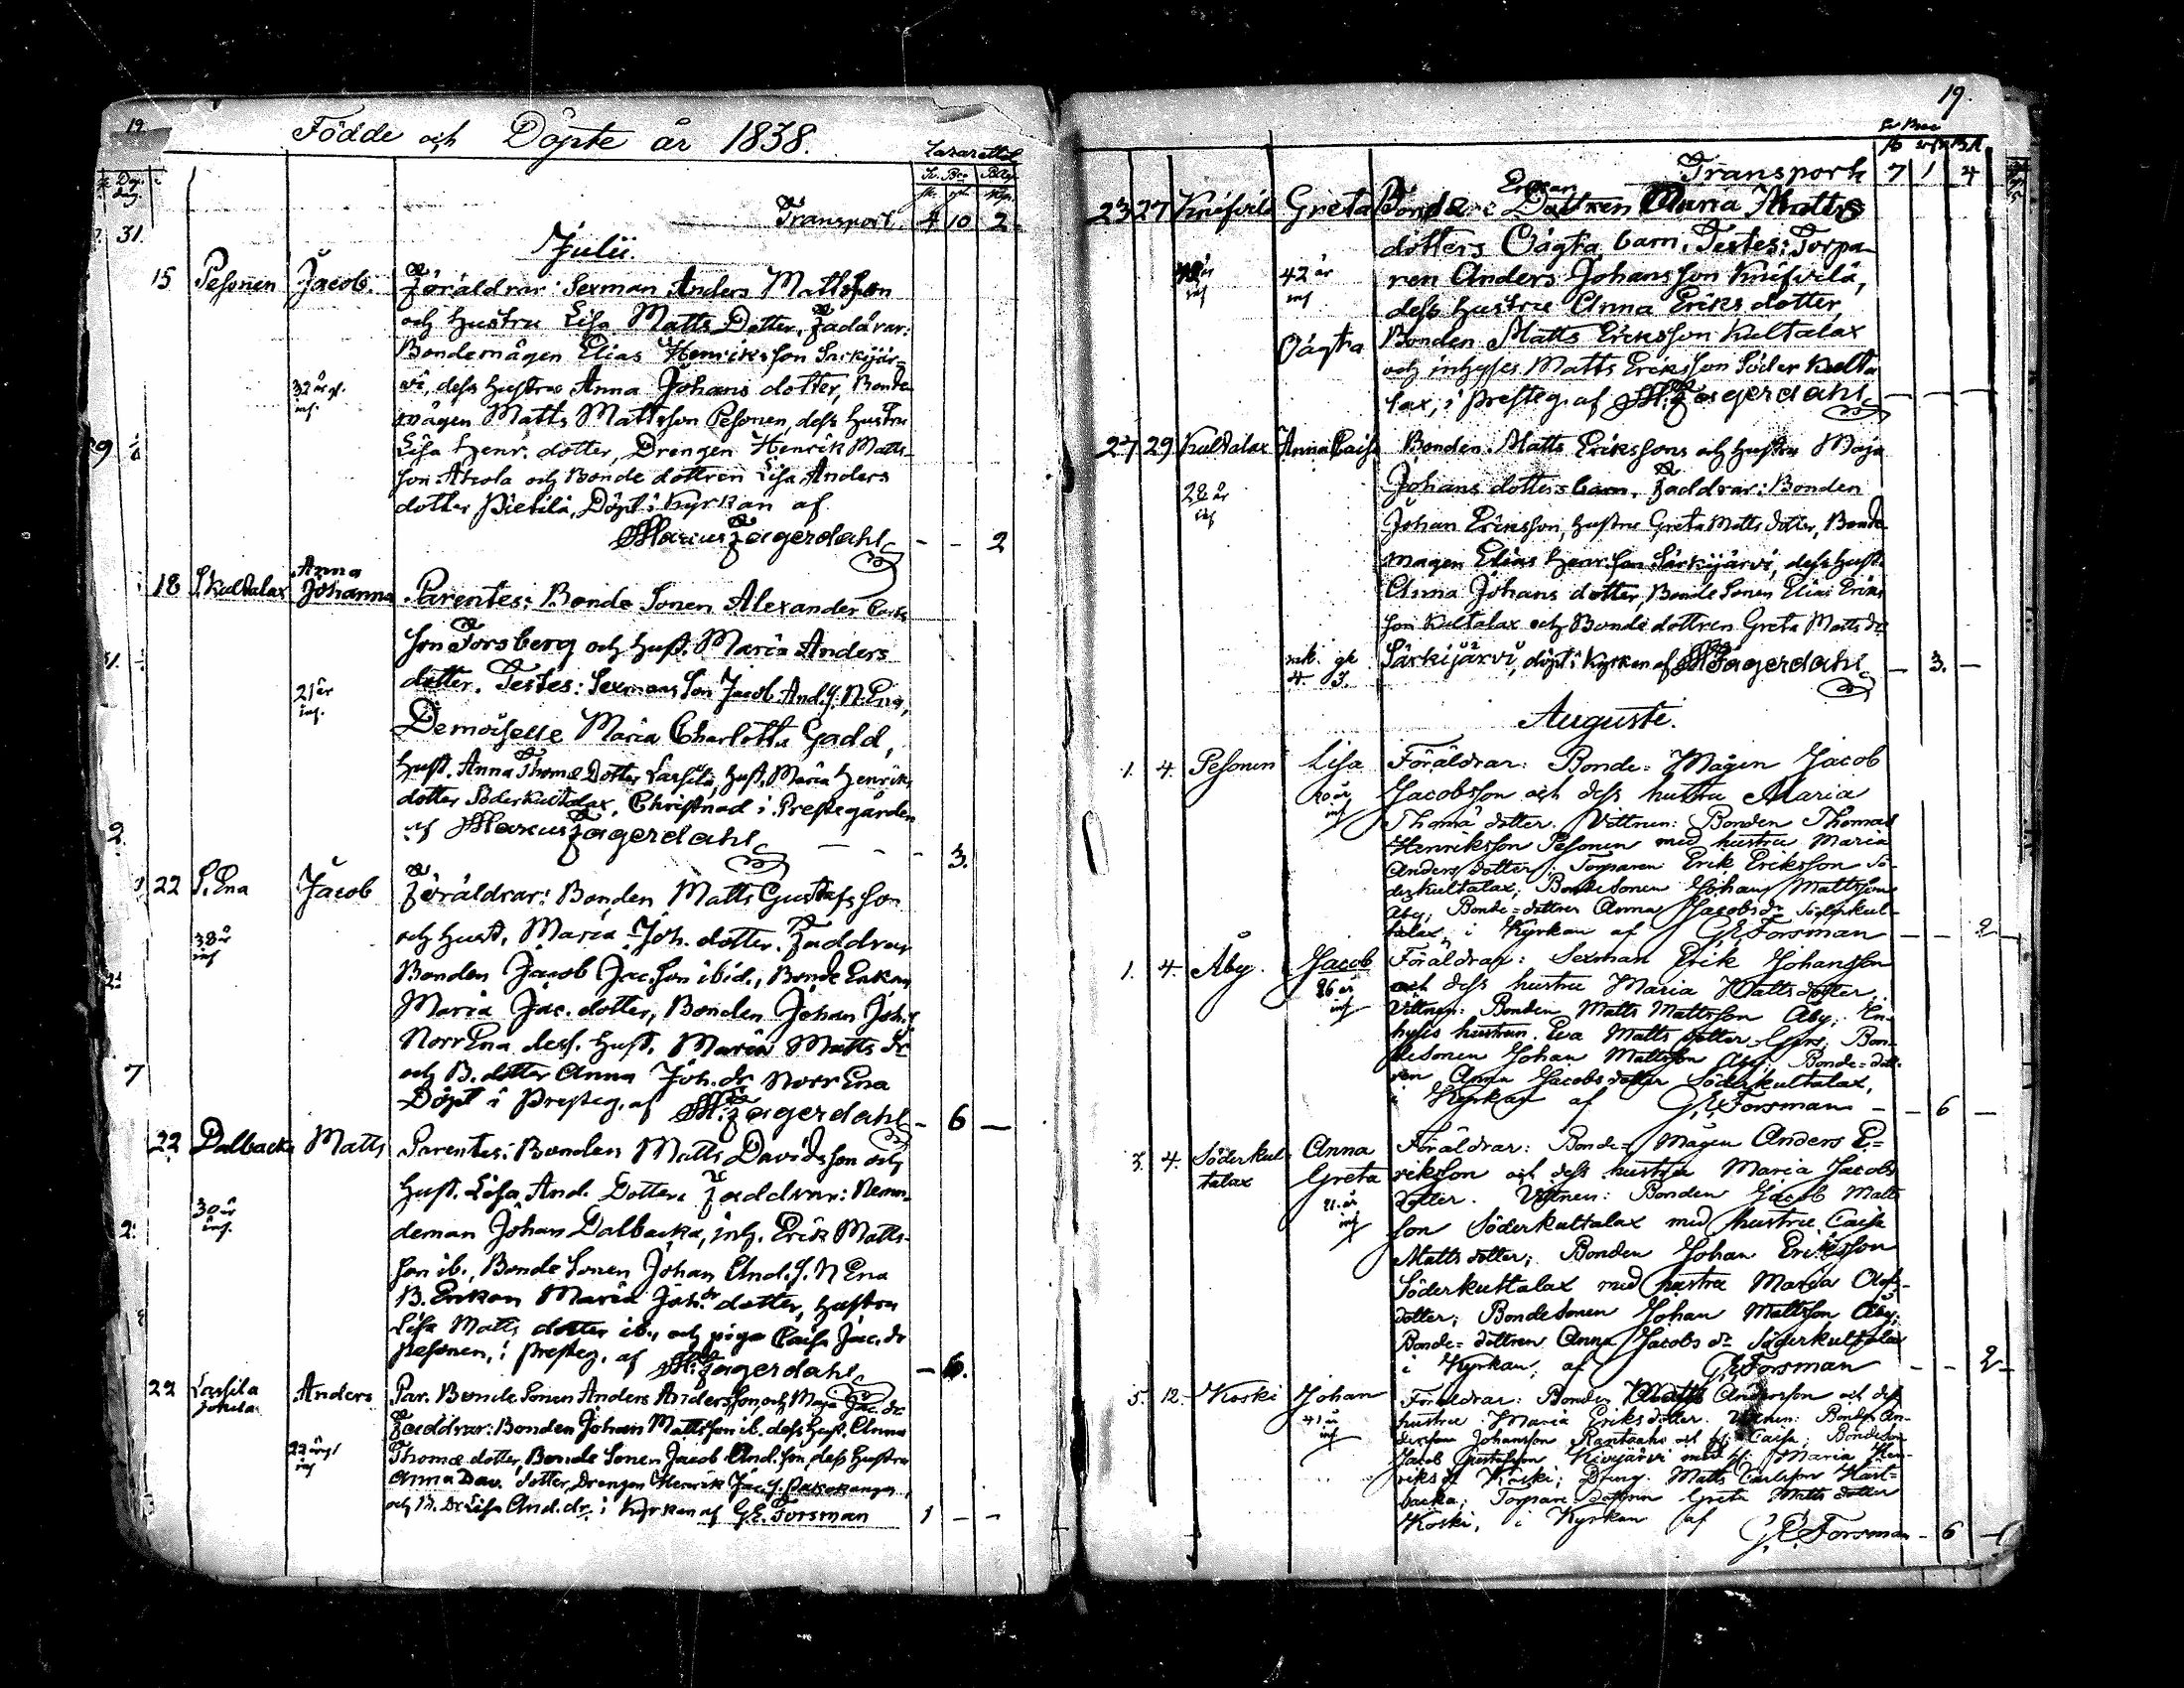 19
Födde och Döpte år 1838.
Lazarettet
Transport. 4 10 2
31.
Julii.
15 Pesonen Jacob. Föräldrar: Sexman Anders Mattsson
och Hustru Lisa Matts Dotter. Faddrar:
Bondemågen Elias Henriksson Särkijär-
vi, dess hustru Anna Johans dotter, Bonde
32 år gl. inf.
mågen Matts Mattsson Pesonen, dess hustru
Lisa Henr. dotter, Drengen Henrik Matts-
son Ahola och Bonde dottren Lisa Anders
dotter Pietilä, Döpt i Kyrkan af
Marcus Fagerdahl - - 2
18 S. Kultalax Anna Johanna Parentes: Bonde Sonen Alexander Carls
son Forsberg och Hust. Maria Anders
dotter. Testes: Sexmans Son Jacob And. S. N. Ena,
21 år inf.
Demoiselle Maria Charlotta Gadd,
Hust. Anna Thomæ Dotter Lassila, Hust. Maria Henriks
dotter Söderkultalax. Christnad i Prestegården
af Marcus Fagerdahl - - - 3.
22 S. Ena Jacob Föräldrar: Bonden Matts Gustafsson
och Hust. Maria Joh. dotter. Faddrar
38 år inf
Bonden Jacob Jac. Son ibid., Bonde Enkan
Maria Jac. dotter, Bonden Johan Joh. S.
Norr Ena dess. Hust. Maria Matts dr
och B. dotter Anna Joh. dr Norr Ena
Döpt i Presteg. af M. Fagerdahl - 6 -
22 Dalbacka Matts Parentes: Bonden Matts Davidsson och
Hust. Lisa And. Dotter. Faddrar: Nemn-
30 år inf.
deman Johan Dalbacka, inh. Erik Matts-
son ib., Bonde Sonen Johan And. S. N Ena
B. Enkan Maria Joh. dotter, hustru
Lisa Matts dotter ib., och piga Caisa Jac. dr
Pesonen, i presteg. af M. Fagerdahl - 6.
22 Lassila Anders Par. Bonde Sonen Anders Andersson, och Maja Jac. dr
Faddrar: Bonden Johan Mattsson ib. dess Hust. Anna
22 år gl inf
Thomæ dotter, Bonde Sonen Jacob And. Son, dess hustru
Anna Dav. dotter, Drengen Henrik Jac. S.
och B. Dr Lisa And. dr. i Kyrkan af G.E. Forsman 1 - -
19.
Transport 7 1 4
23 27 Knifvilä Greta Bonde Enkan Dottren Maria Matts
dotters Oägta barn. Testes: Torpa-
42 år inf
ren Anders Johansson Knifvilä,
dess hustru Anna Eriks dotter,
Oägta
Bonden Matts Eriksson Kultalax
och inhyses Matts Eriksson Söder Kulta
lax, i presteg. af M. Fagerdahl - - -
27 29 Kultalax Anna Caisa Bonden Matts Erikssons och hustru Maja
28 år inf
Johans dotters barn. Faddrar: Bonden
Johan Eriksson, hustru Greta Matts dotter, Bonde
mågen Elias Henr. son Särkijärvi, dess hust.
Anna Johans dotter, Bonde Sonen Elias Eriks
son Kultalax och Bonde dottren Greta Matts dr
mk. gk
4. 3.
Särkijärvi, döpt i Kyrkan af M Fagerdahl - 3. -
Augusti.
1. 4. Pesonen Lisa Föräldrar: Bonde-Mågen Jacob
Jacobsson och dess hustru Maria
Thomä dotter. Vittnen: Bonden Thomas
Henriksson Pesonen med hustru Maria
Anders dotter; Torparen Erik Eriksson Sö-
derkultalax; Bondesonen Johan Mattsson
Aby; Bonde-dottren Anna Jacobs dr Söderkul-
talax, i Kyrkan af G.E. Forsman - - 2
1. 4. Åby. Jacob Föräldrar: Sexman Erik Johansson
26 år inf
och dess hustru Maria Matts dotter.
Vittnen: Bonden Matts Mattsson Aby; In-
hyses hustrun Eva Matts dotter Gers; Bon-
desonen Johan Mattsson Aby; Bonde-dott-
ren Anna Jacobs dotter Söderkultalax,
i Kyrkan af G.E. Forsman - - 6 -
3. 4. Söderkul-
talax Anna
Greta Föräldrar: Bonde-Mågen Anders E-
riksson och dess hustru Maria Jacobs
21. år inf
dotter. Vittnen: Bonden Jacob Matts
son Söderkultalax med hustru Caisa
Matts dotter; Bonden Johan Eriksson
Söderkultalax med hustru Maria Olofs-
dotter; Bondesonen Johan Mattsson Aby;
Bonde-dottren Anna Jacobs dr Söderkultalax
i Kyrkan, af G.E. Forsman - - 2 -
5. 12. Koski Johan Föräldrar: Bonden Matts Andersson och dess
41 år inf
hustru Maria Eriks dotter. Vittnen: Bonden An-
dersson Johansson Rantaaho och h. Caisa; Bondeson
Jacob Gustafsson Kivijärvi med h. Maria Hen-
riks dr Koski; Dräng. Matts Carlsson Käst-
backa; Torpare-dottren Greta Matts dotter
Koski, i Kyrkan af G.E. Forsman - 6 -